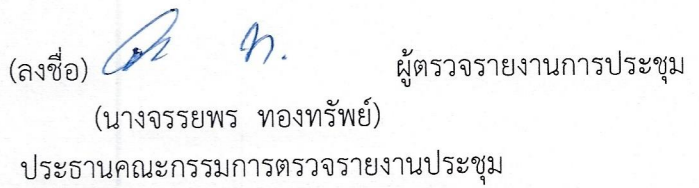 (ลงชื่อ) ผู้ตรวจรายงานการประชุม
(นางจรรยพร ทองทรัพย์)
ประธานคณะกรรมการตรวจรายงานประชุม